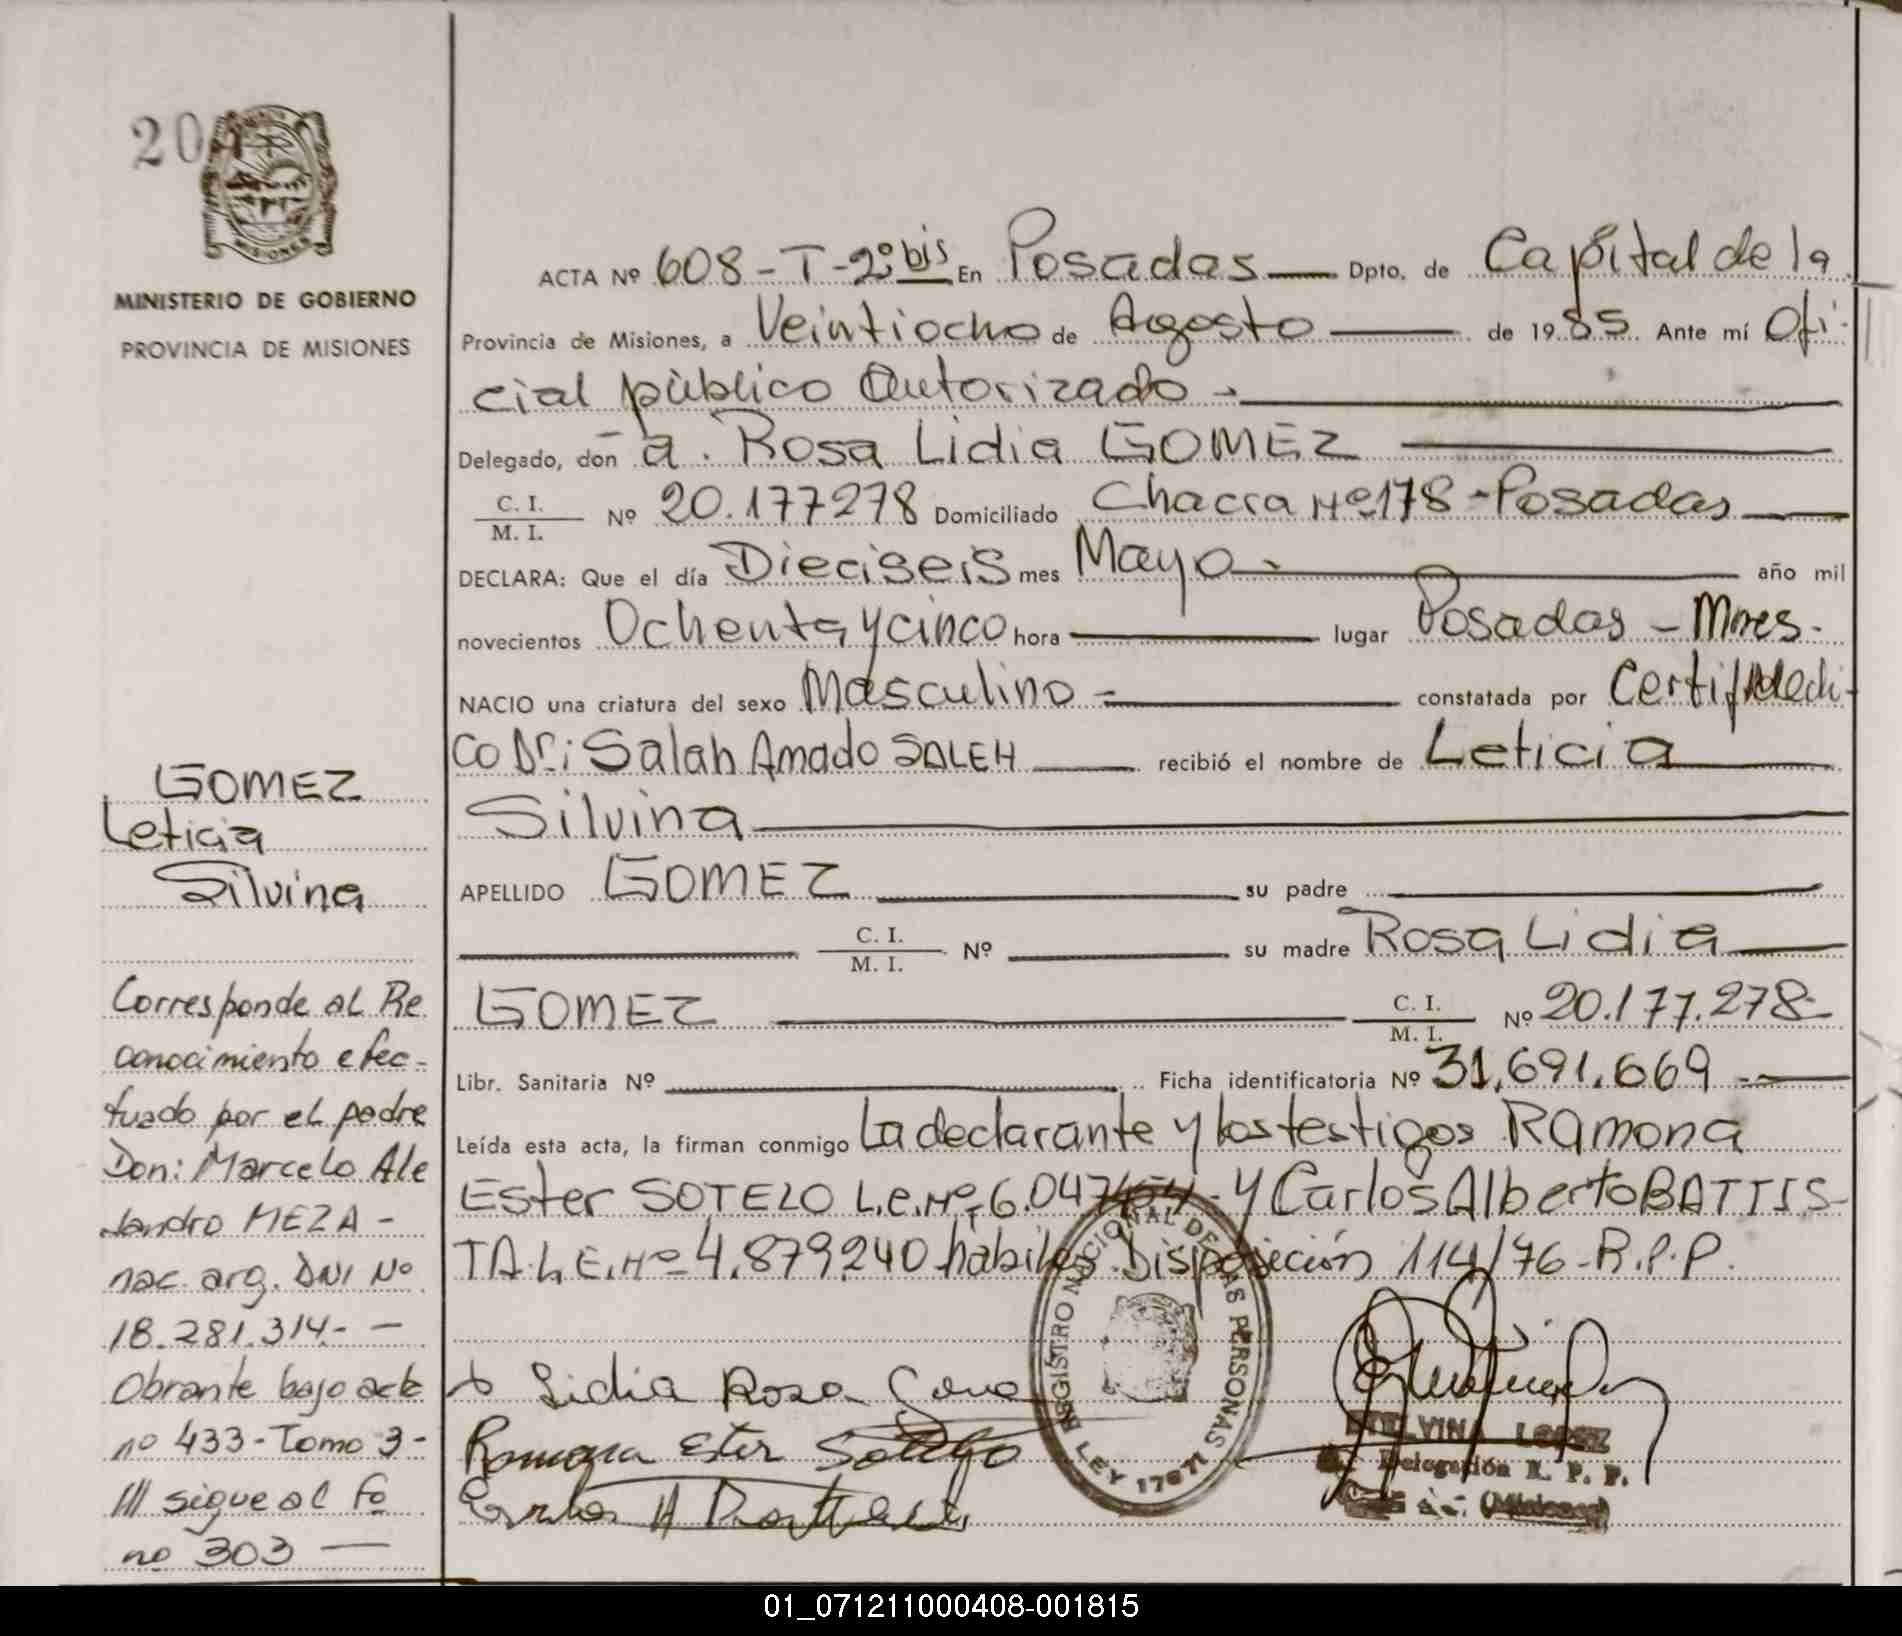 20
MISIONES
MINISTERIO DE GOBIERNO
PROVINCIA DE MISIONES
ACTA Nº 608-T-2º bis En Posadas Dpto. de Capital de la
Provincia de Misiones, a Veintiocho de Agosto de 1985. Ante mí Ofi-
cial público Autorizado -
Delegado, don -a. Rosa Lidia GOMEZ
C. I.
M. I. Nº 20.177278 Domiciliado Chacra Nº 178-Posadas
DECLARA: Que el día Dieciseis mes Mayo- año mil
novecientos Ochenta y cinco hora lugar Posadas - Mnes.
NACIO una criatura del sexo Masculino - constatada por Certif Medi-
co Dr: Salah Amado SALEH recibió el nombre de Leticia
Silvina
APELLIDO GOMEZ su padre
C. I.
M. I. Nº su madre Rosa Lidia
GOMEZ C. I.
M. I. Nº 20.177.278-
Libr. Sanitaria Nº Ficha identificatoria Nº 31,691.669 -
Leída esta acta, la firman conmigo La declarante y los testigos Ramona
Ester SOTELO L.e.Nº 6.047 - y Carlos Alberto BATTIS-
TA. L.E.Nº 4.879.240 hábiles. Disposición 114/76-R.P.P.
Lidia Rosa
Ramona Ester Sotelo
Carlos A
REGISTRO NACIONAL DE LAS PERSONAS
LEY 17671
LOPEZ
Delegación R. P. P.
(Misiones)
GOMEZ
Leticia
Silvina
Corresponde al Re
conocimiento efec-
tuado por el padre
Don: Marcelo Ale
jandro MEZA -
nac. arg. DNI Nº
18.281.314.- -
Obrante bajo acta
nº 433-Tomo 3-
/// sigue al fº
nº 303 -
01_071211000408-001815